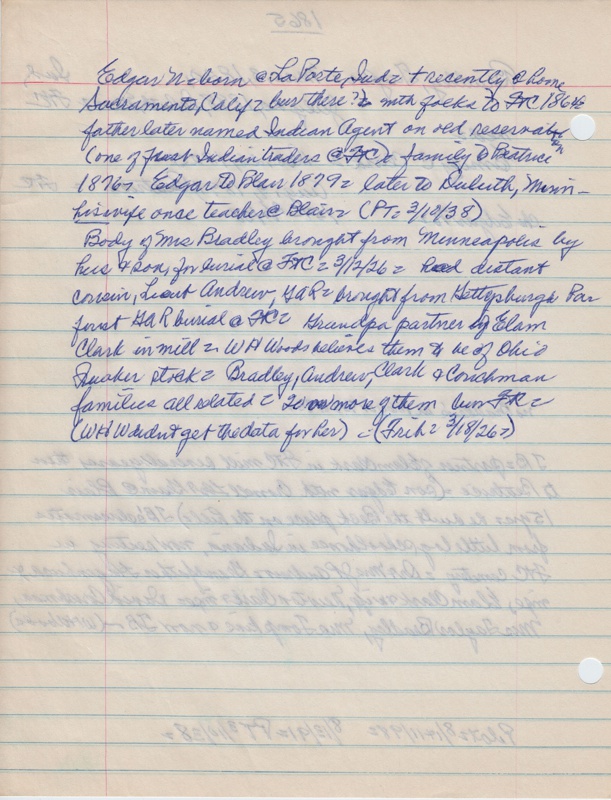 1865
Edgar n= born @ LaPorte, Ind= + recently @ home
Sacramento, Calif= bur there?= with folks to FtC 1864=
father later named Indian Agent on old reservation
(one of first Indian traders @ FtC)= family to Beatrice
1876= Edgar to Blair 1879= later to Duluth, Minn-
his wife once teacher @ Blair= (PT= 3/10/38)
Body of Mrs Bradley brought from Minneapolis by
hus & son, for burial @ FtC= 3/12/26= had distant
cousin, Lieut Andrew, GAR= brought from Gettysburg Pa for
first GAR burial @ FtC= Grandpa partner of Elam
Clark in mill= WH Woods believes them to be of Ohio
Quaker stock= Bradley, Andrew, Clark & Couchman
families all related= 20 or more of them bur FtC=
(WHW didn't get the data for her) = (Trib= 3/18/26=)